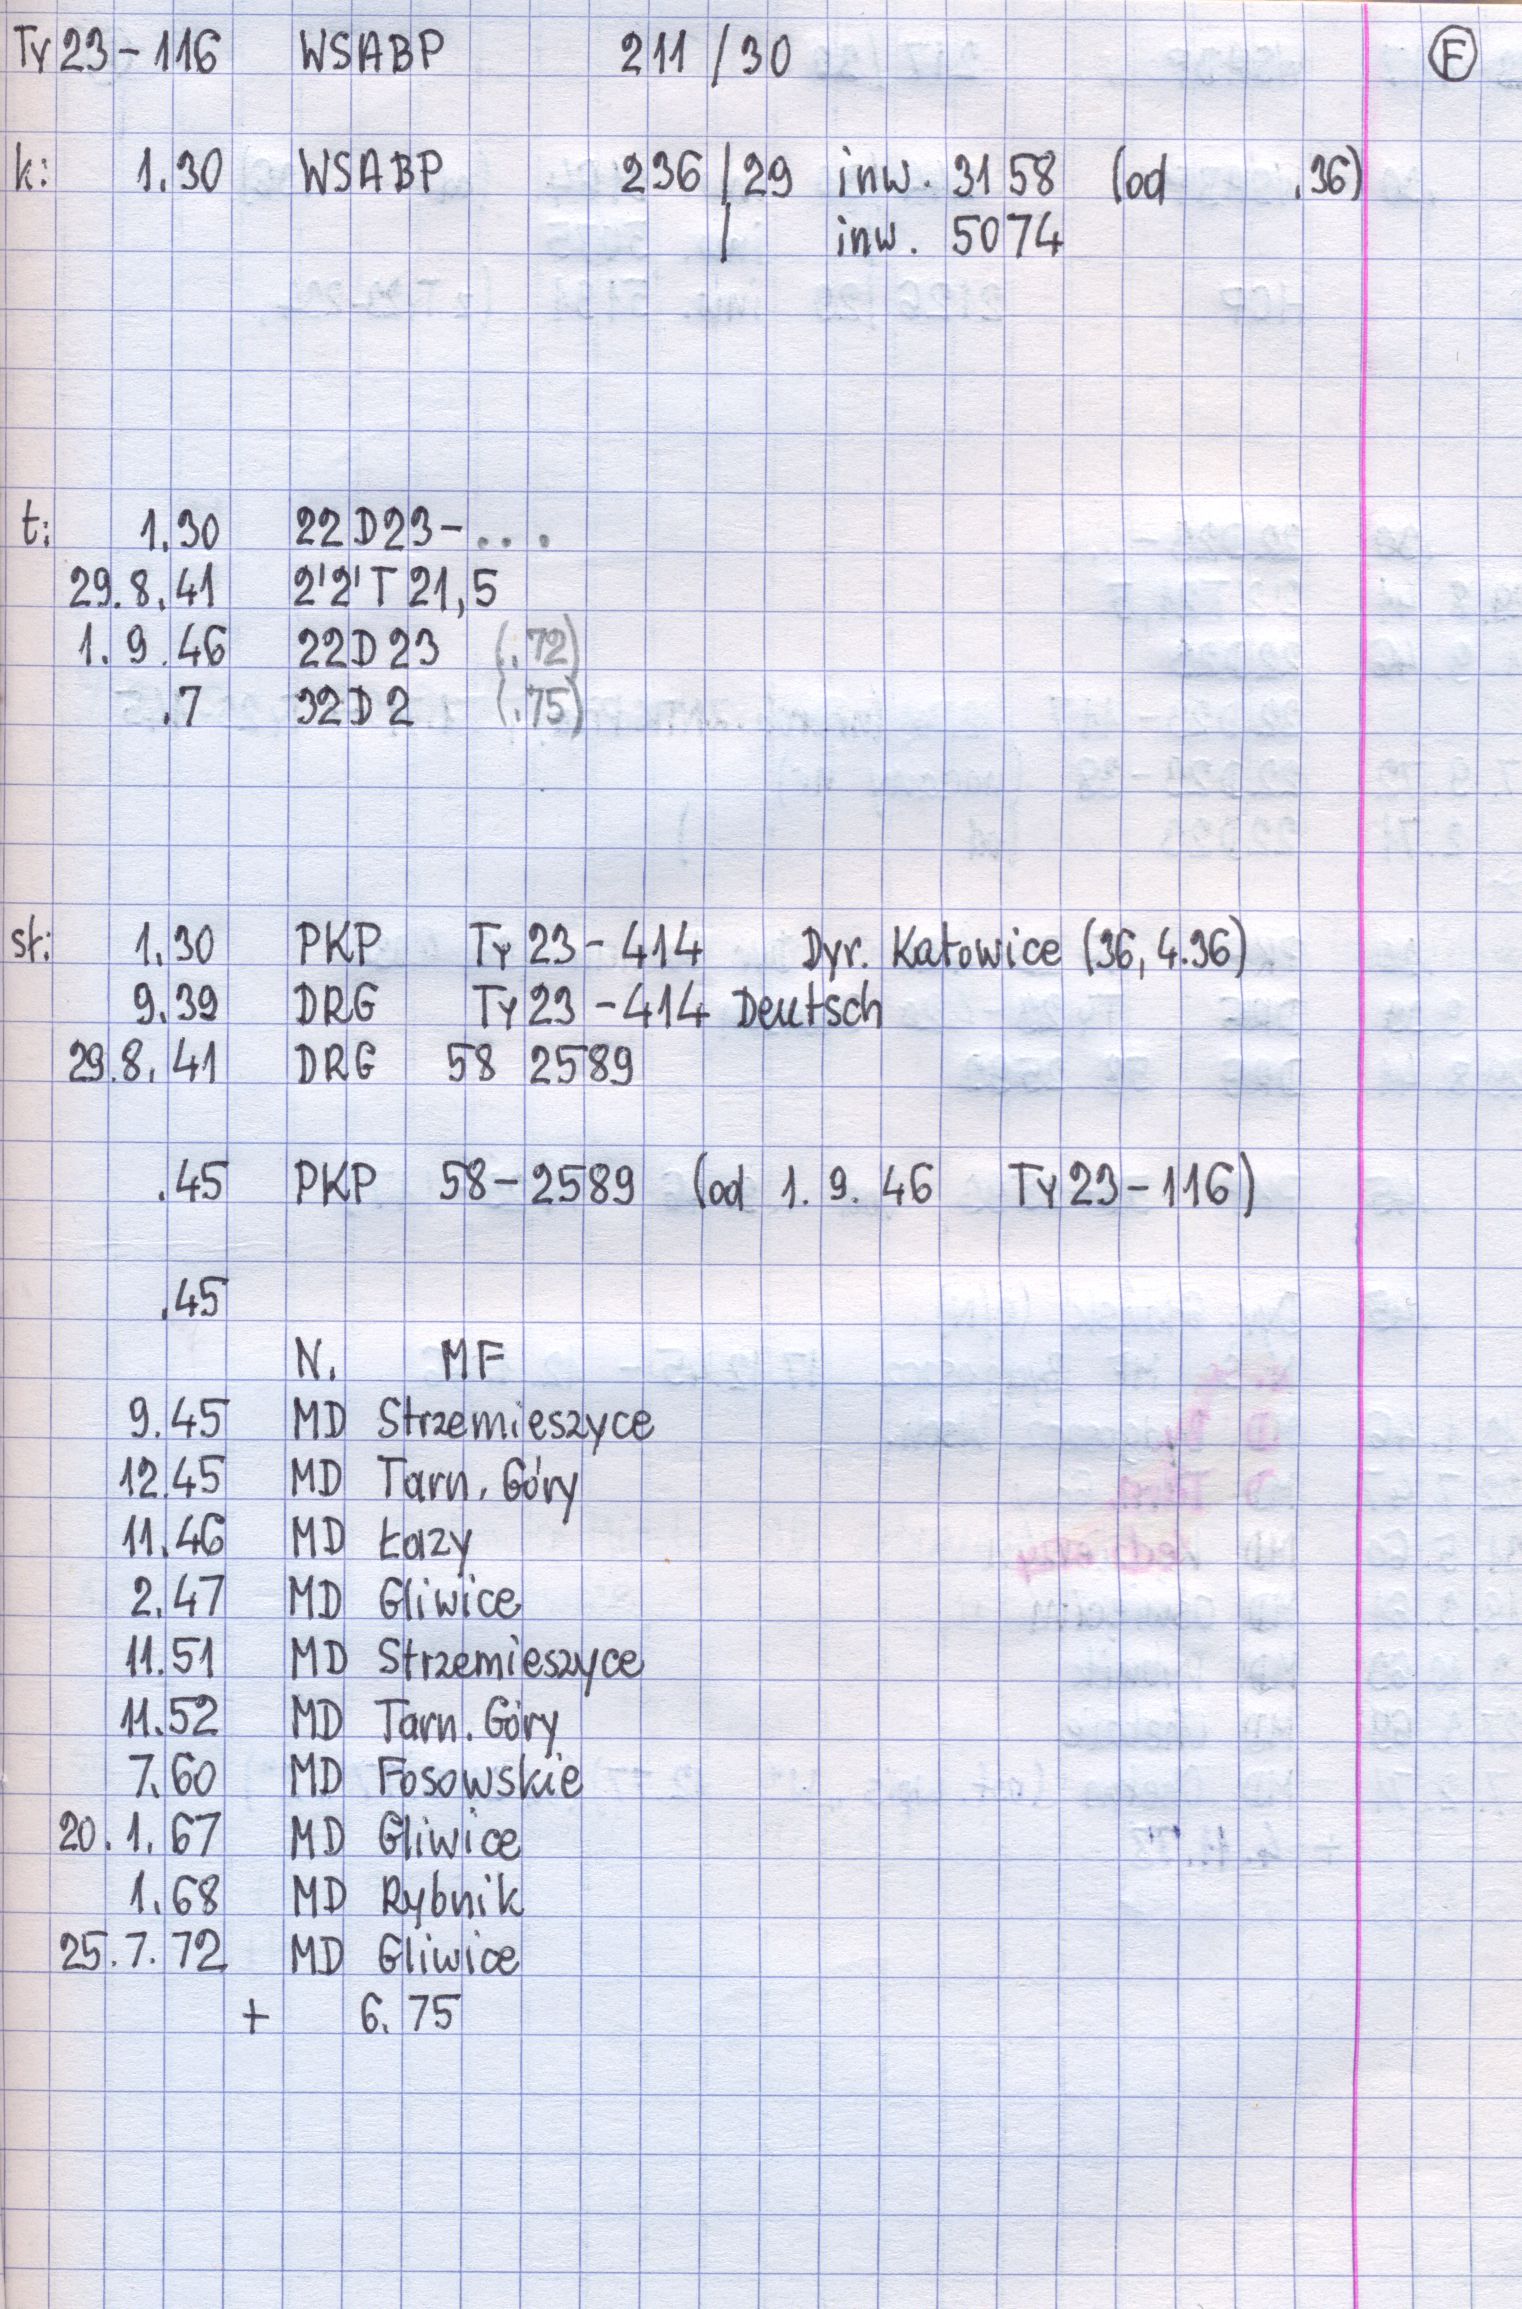 Ty23-116 WSABP 211/30 F
k: 1.30 WSABP 236/29 inw. 3158 (od .36)
/ inw. 5074
t: 1.30 22D23-....
29.8.41 2'2'T21,5
1.9.46 22D23 (.72)
.7 32D2 (.75)
st: 1.30 PKP Ty23-414 Dyr. Katowice (36, 4.36)
9.39 DRG Ty23-414 Deutsch
29.8.41 DRG 58 2589
.45 PKP 58-2589 (od 1.9.46 Ty23-116)
.45
N. MF
9.45 MD Strzemieszyce
12.45 MD Tarn. Góry
11.46 MD Łazy
2.47 MD Gliwice
11.51 MD Strzemieszyce
11.52 MD Tarn. Góry
7.60 MD Fosowskie
20.1.67 MD Gliwice
1.68 MD Rybnik
25.7.72 MD Gliwice
+ 6.75